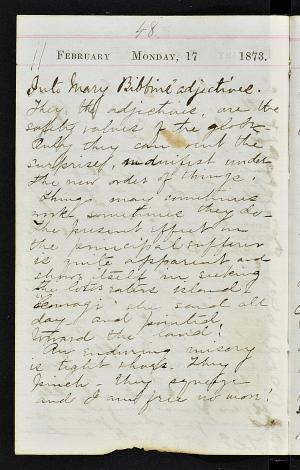 48.
11
FEBRUARY MONDAY, 17 1873.
Into Mary Bibbins' adjectives.
They, the adjectives, are the
safety valves of the globe.
Only they can vent the
surprises, under
the new order of things!
Things may sometimes
work sometimes they do—
The present effect on
the principal sufferer
is quite apparent and
shows itself in seeking
the island
she said all
day and pointed
toward the land!
An enduring misery
is tight shoes. They
pinch - they squeeze
and I am free no more!